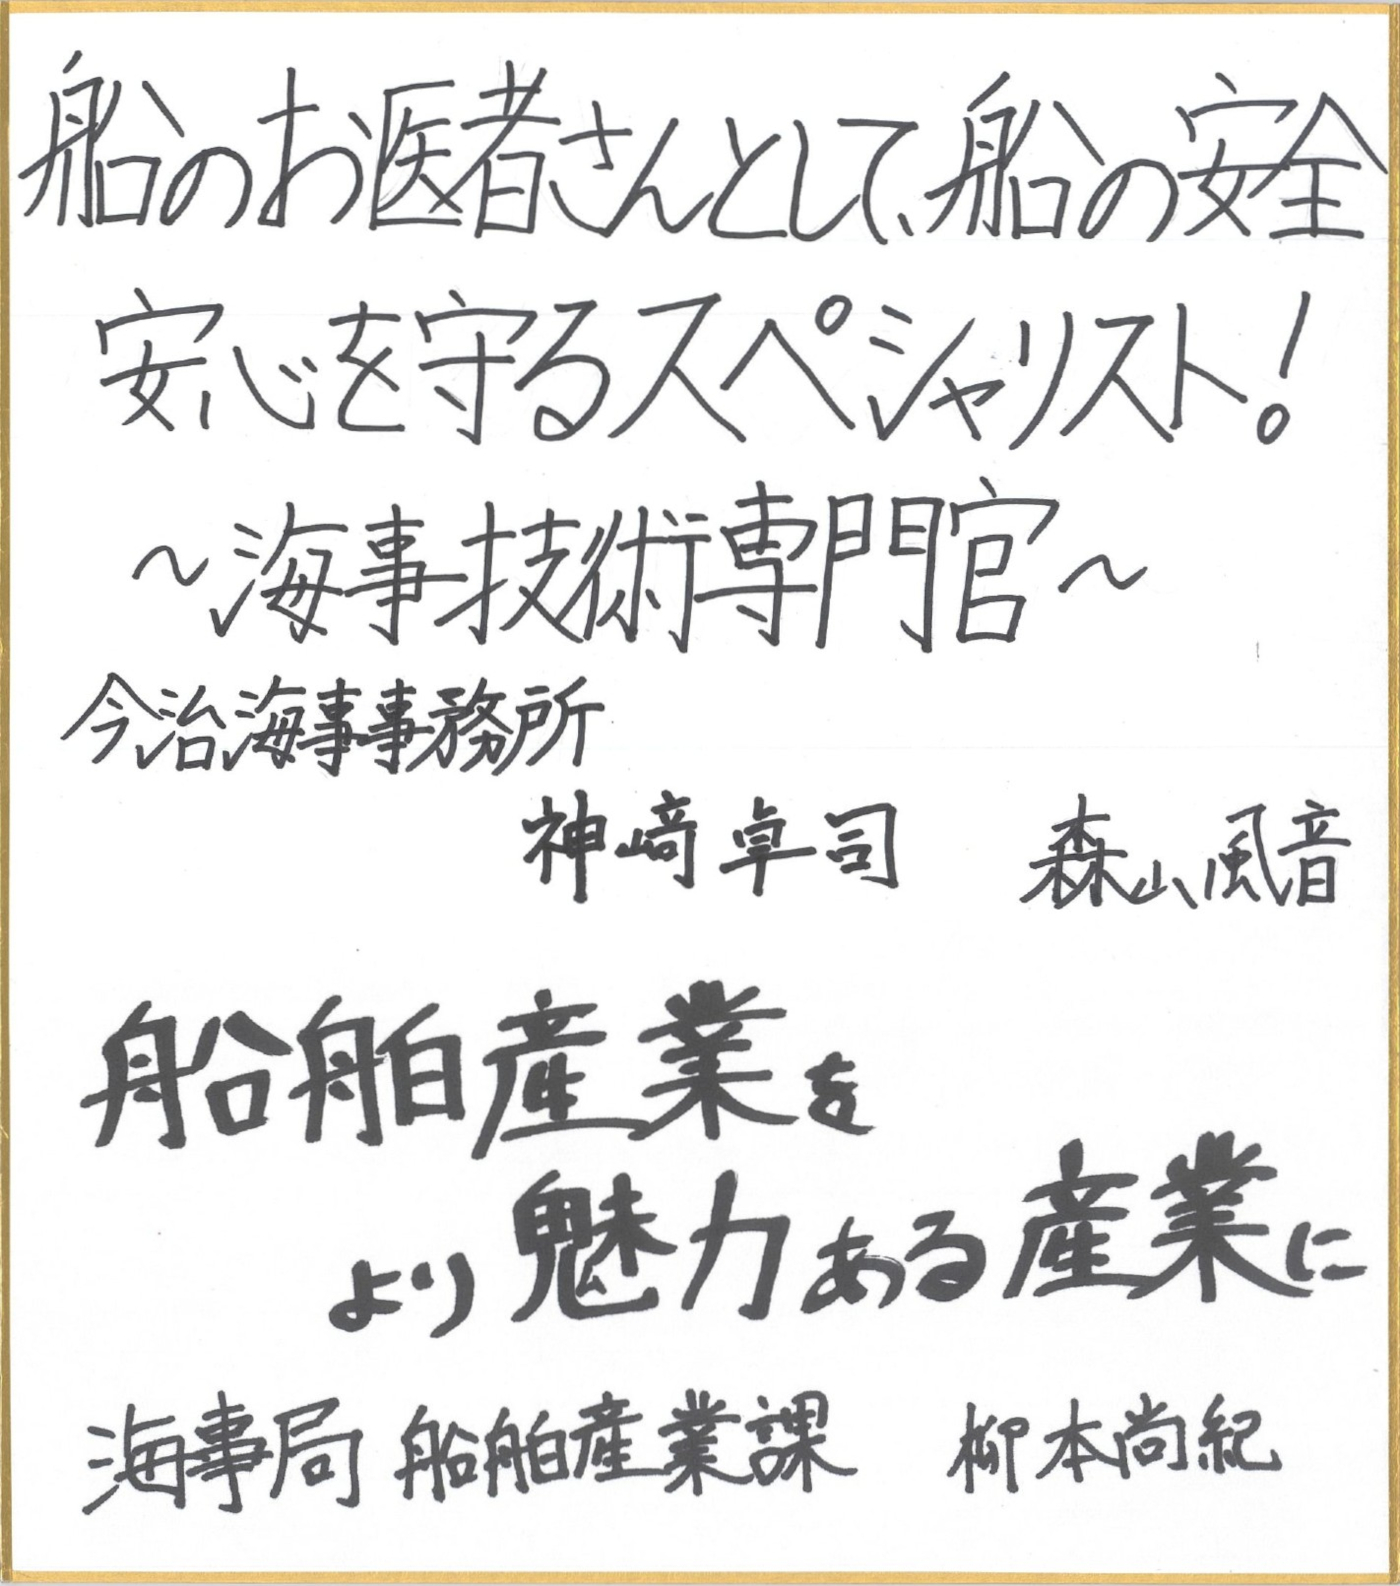 船のお医者さんとして、船の安全
安心を守るスペシャリスト!
～海事技術専門官～
今治海事事務所
神﨑卓司 森山風音
船舶産業を
より魅力ある産業に
海事局 船舶産業課 柳本尚紀